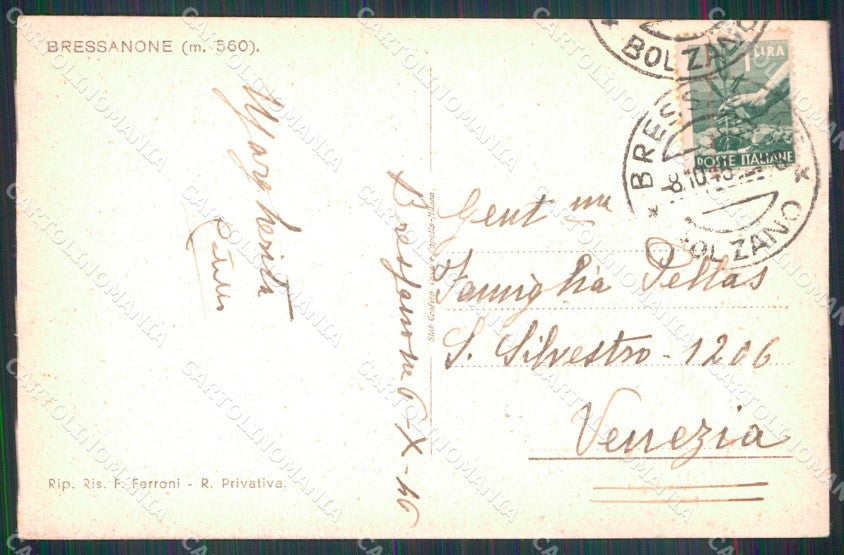 BRESSANONE (m. 560).
Margherita
Bressanone 6-X-46
Stab. Grafico Cesare Capello-Milano
1 LIRA
POSTE ITALIANE
BOLZANO
BRESSANONE
8.10.46
BOLZANO
Gent ma
Famiglia Pellas
S. Silvestro-1206
Venezia
Rip. Ris. F. Ferroni - R. Privativa.
CARTOLINOMANIA